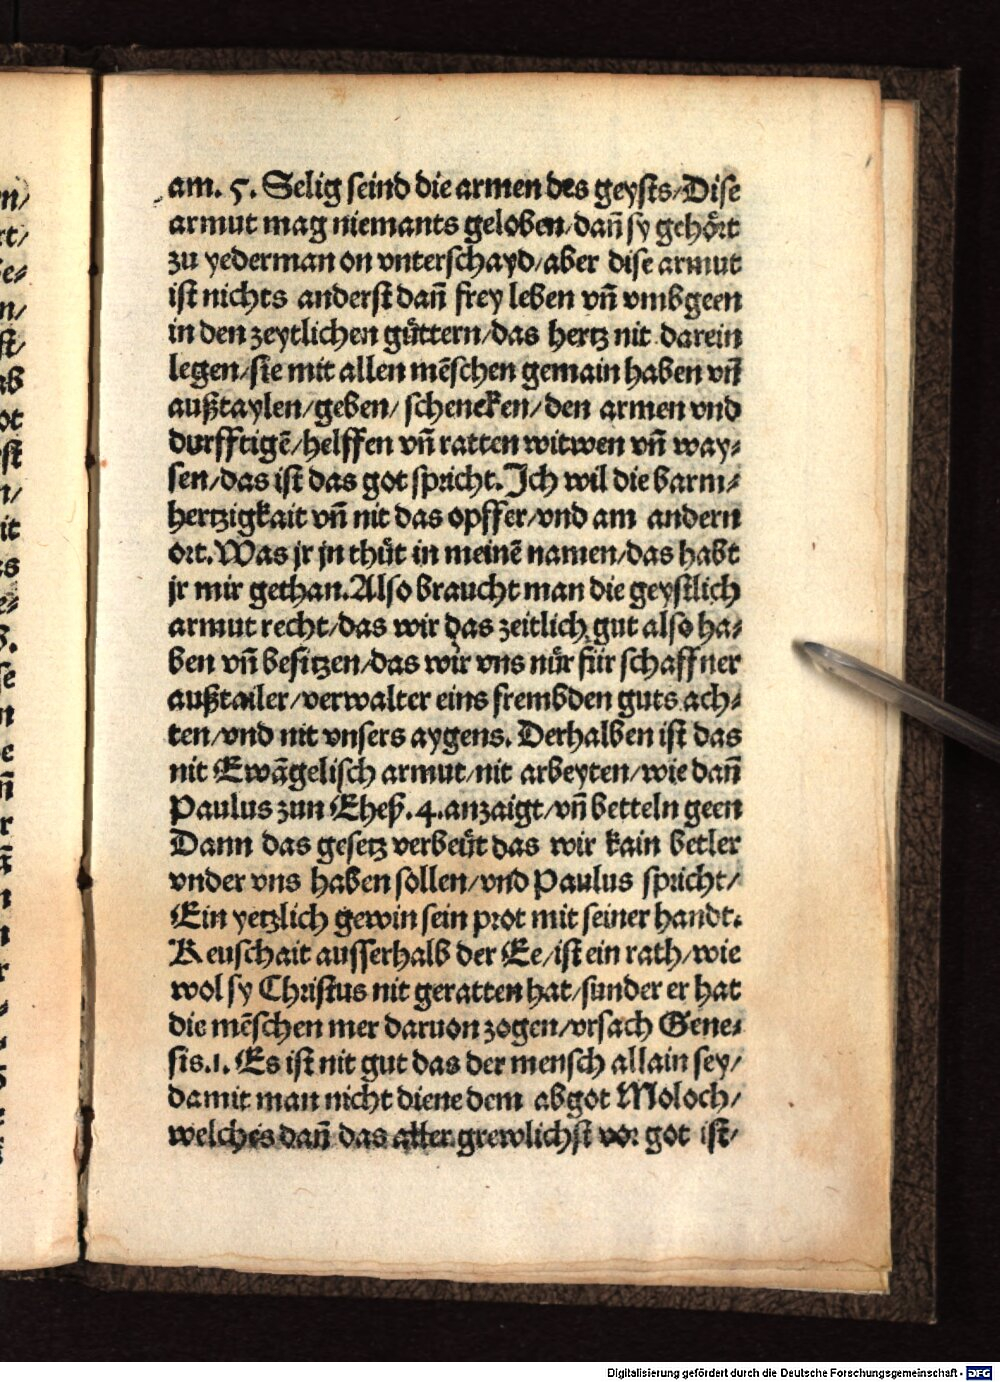 am. 5. Selig seind die armen des geysts/Dise
armut mag niemants geloben/dañ sy gehört
zu yederman on vnterschayd/aber dise armut
ist nichts anderst dañ frey leben vñ vmbgeen
in den zeytlichen güttern/das hertz nit darein
legen/sie mit allen mẽschen gemain haben vñ
außtaylen/geben/ schencken/den armen vnd
durfftigẽ/helffen vñ ratten witwen vñ way⸗
sen/das ist das got spricht. Ich wil die barm⸗
hertzigkait vñ nit das opffer/vnd am andern
ort. Was jr jn thüt in meinẽ namen/das habt
jr mir gethan. Also braucht man die geystlich
armut recht/das wir das zeitlich gut also ha⸗
ben vñ besitzen/das wir vns nür für schaffner
außtailer/verwalter eins frembden guts ach⸗
ten/vnd nit vnsers aygens. Derhalben ist das
nit Ewãgelisch armut/nit arbeyten/wie dañ
Paulus zun Ephes. 4. anzaigt/vñ betteln geen
Dann das gesetz verbeüt das wir kain betler
vnder vns haben sollen/vnd Paulus spricht/
Ein yetzlich gewin sein prot mit seiner handt.
Keuschait ausserhalb der Ee/ist ein rath/wie
wol sy Christus nit geratten hat/sunder er hat
die mẽschen mer daruon zogen/vrsach Gene⸗
sis.1. Es ist nit gut das der mensch allain sey/
damit man nicht diene dem abgot Moloch/
welches dañ das aller grewlichst vor got ist/
n/
rt/
n/
st/
ab
ot
st
n/
it
Digitalisierung gefördert durch die Deutsche Forschungsgemeinschaft - DFG